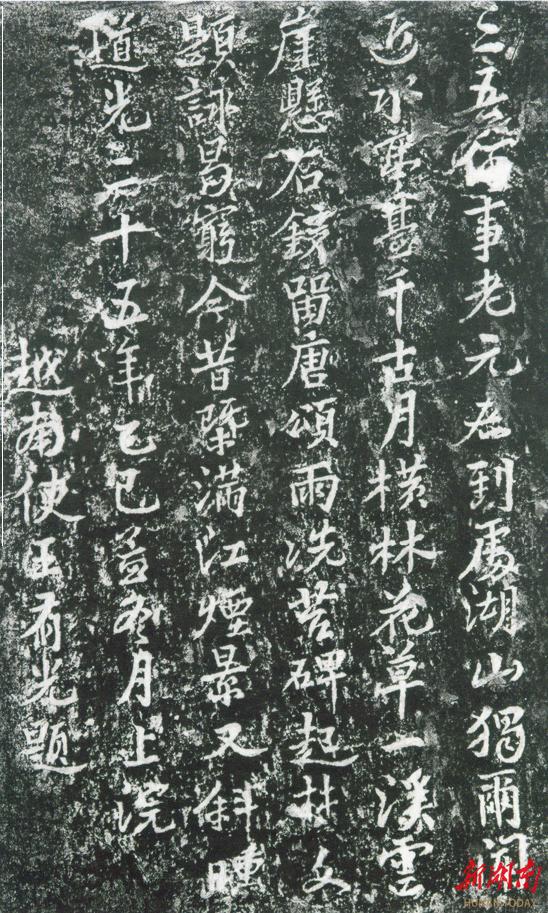 三吾何事老元君到處湖山獨爾聞
近水亭臺千古月橫林花草一溪雲
崖懸石鏡留唐頌雨洗苔碑起文
題詠曷窮今昔槩滿江煙景又斜曛
道光二十五年乙巳孟冬月上浣
越南使王有光題
新湖南
HUNAN TODAY